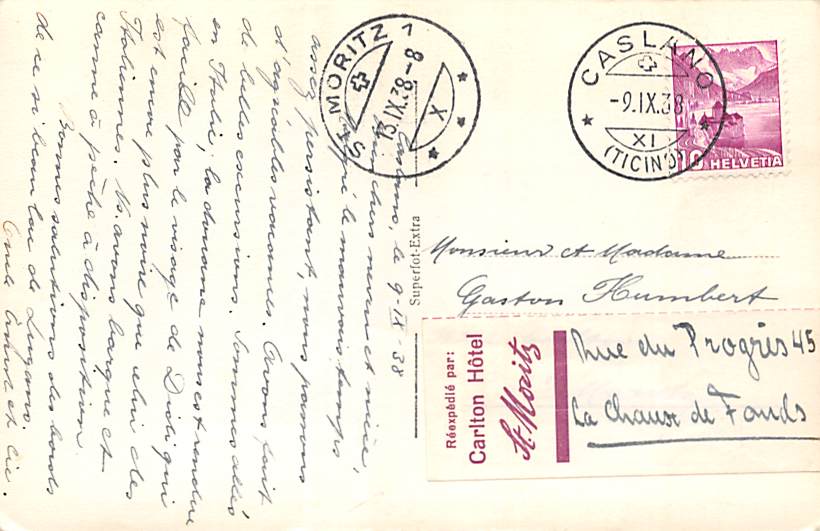 Caslano, le 9-IX-38
Bien chers neveu et nièce,
Malgré le mauvais temps
assez persistant, nous passons
d'agréables vacances. Avons fait
de belles excursions. Sommes allés
en Italie, la douane nous est rendue
facile par le visage de Didi qui
est encore plus noire que celui des
Italiennes. Ns. avons barque et
canne à pêche à disposition.
Bonnes salutations des bords
de ce si beau lac de Lugano.
Oncle Arthur et Cie.
ST. MORITZ 1
13.IX.38.-8
X
CASLANO
-9.IX.38
XI
(TICINO)
10 HELVETIA
Superfot-Extra
Monsieur et Madame
Gaston Humbert
Réexpédié par:
Carlton Hôtel
St. Moritz
Rue du Progrès 45
La Chaux de Fonds